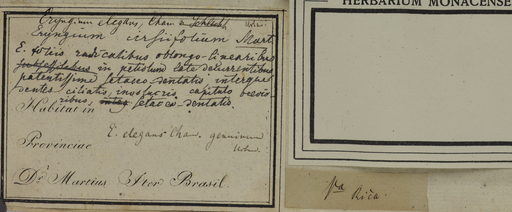 Eryngium elegans, Cham & Schlecht.
Eryngium versifolium Mart
E. foliis radicalibus oblongo-linearibus
in petiolum late decurrentibus
patentissime setaceo-dentatis interque
dentes ciliatis, involucris capitulo brevio-
ribus, setaceo-dentatis.
Habitat in
E. elegans Cham. genuinum
Urban
Provinciae
Dr. Martius Iter Brasil.
HERBARIUM MONACENSE